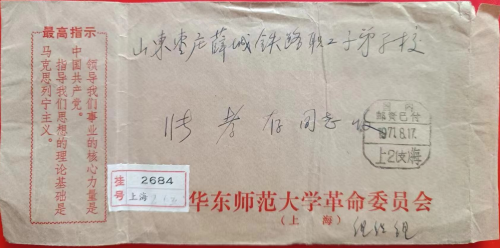 最高指示
领导我们事业的核心力量是
中国共产党。
指导我们思想的理论基础是
马克思列宁主义。
山东枣庄薛城铁路职工子弟学校
张孝存同志收
国内
邮资已付
1971.8.17.
上海
挂号
2684
上海
华东师范大学革命委员会
(上海)
组织组